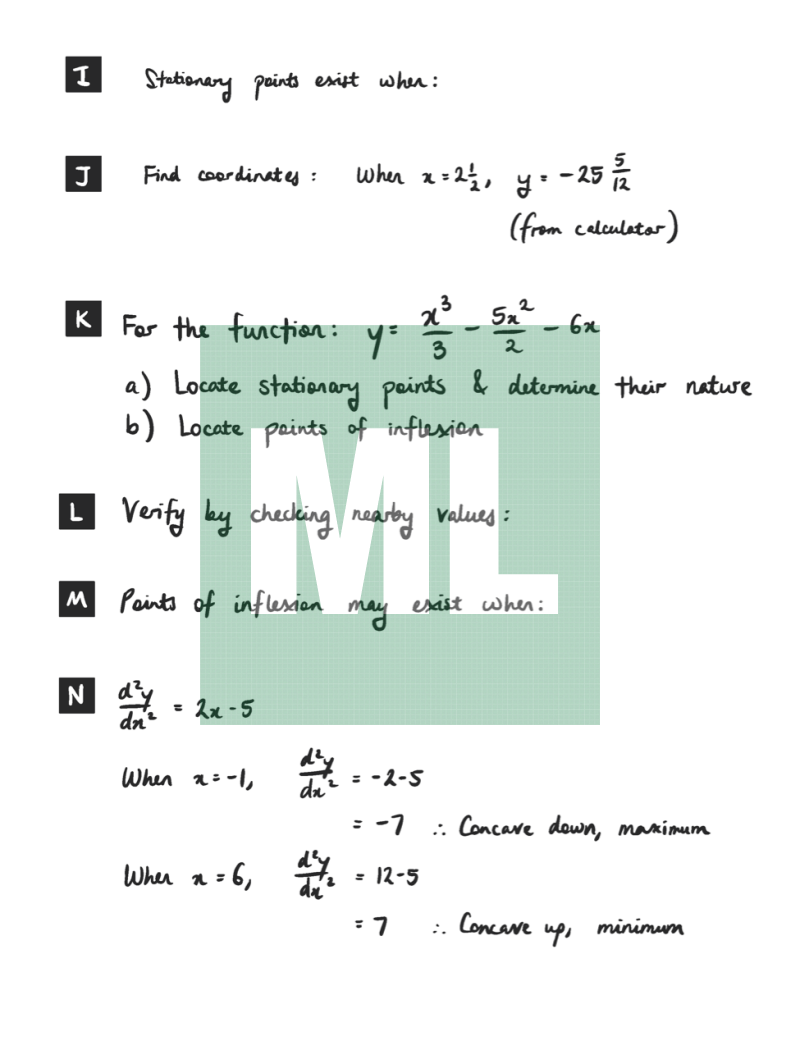 I Stationary points exist when:
J Find coordinates: When x = 2½, y = -25 5/12
(from calculator)
K For the function: y = x³/3 - 5x²/2 - 6x
a) Locate stationary points & determine their nature
b) Locate points of inflexion
L Verify by checking nearby values:
M Points of inflexion may exist when:
N d²y/dx² = 2x - 5
When x = -1, d²y/dx² = -2-5
= -7 ∴ Concave down, maximum
When x = 6, d²y/dx² = 12-5
= 7 ∴ Concave up, minimum
ML